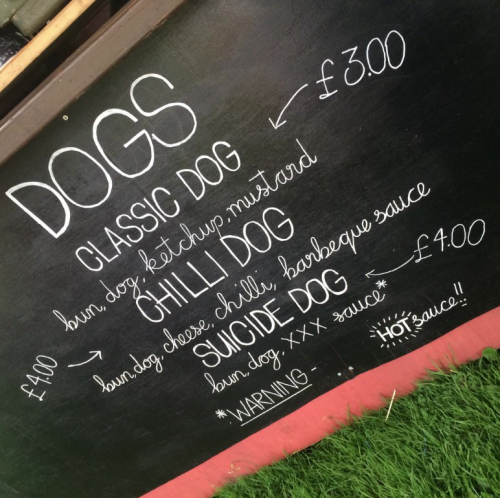 DOGS
£3.00
CLASSIC DOG
bun, dog, ketchup, mustard
CHILLI DOG
bun, dog, cheese, chilli, barbeque sauce
£4.00
SUICIDE DOG
£4.00
bun, dog, xxx sauce*
*WARNING - HOT sauce!!